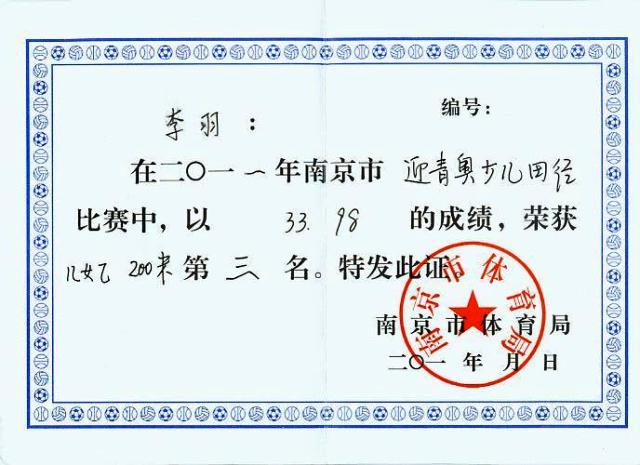 编号：
李羽：
在二〇一一年南京市 迎青奥少儿田径
比赛中，以 33.98 的成绩，荣获
儿女乙 200米 第三名。特发此证
南京市体育局
南京市体育局
二〇一 年 月 日